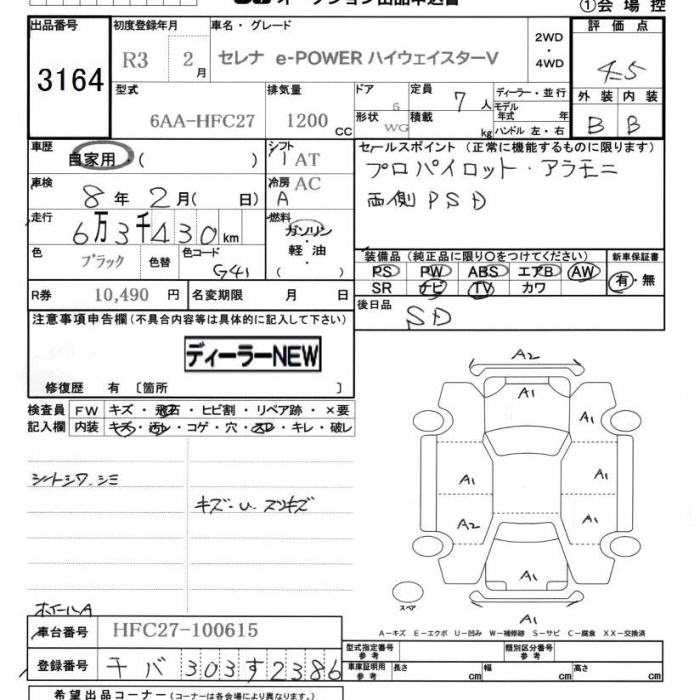 オークション出品申込書
①会場控
出品番号
3164
初度登録年月
R3 2月
車名・グレード
セレナ e-POWER ハイウェイスターV
2WD
・
4WD
評価点
4.5
外装 内装
B B
型式
6AA-HFC27
排気量
1200 CC
ドア
5
形状
WG
定員
7人
積載
kg
ディーラー・並行
モデル年式 年
ハンドル 左・右
車歴
自家用・( )
シフト
AT
冷房
AC
A
車検
8年2月( 日)
走行
6万3千430km
燃料
ガソリン
・
軽・油
( )
色
ブラック
色替
色コード
G41
R券 10,490 円
名変期限 月 日
セールスポイント (正常に機能するものに限ります)
プロパイロット・アラモニ
両側PSD
装備品 (純正品に限り○をつけてください)
PS PW ABS エアB AW
SR ナビ TV カワ
新車保証書
有・無
後日品
SD
注意事項申告欄 (不具合内容等は具体的に記入して下さい)
ディーラーNEW
修復歴 有 〔箇所 〕
検査員
記入欄
FW キズ・飛石・ヒビ割・リペア跡・×要
内装 キズ・汚レ・コゲ・穴・スレ・キレ・破レ
シートシワ.シミ
キズ・U.スリキズ
ホイールA
A2
A1
A1
A1
A1
A2
A1
A1
A1
スペア
A-キズ E-エクボ U-凹み W-補修跡 S-サビ C-腐食 XX-交換済
車台番号
HFC27-100615
登録番号
チバ 303す2386
型式指定番号
参考
類別区分番号
参考
車庫証明用
参考
長さ cm
幅 cm
高さ cm
希望出品コーナー (コーナーは各会場により異なります。)